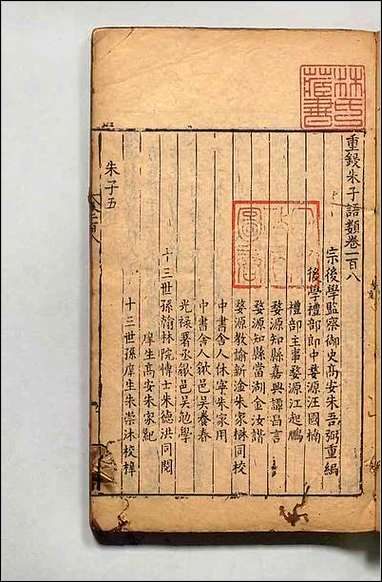 重鋟朱子語類卷一百八
宗後學監察御史高安朱吾弼重編
後學禮部郎中婺源汪國楠
禮部主事婺源江起鵬
婺源知縣嘉興譚昌言
婺源知縣當湖金汝諧
婺源教諭新淦朱家楙同校
中書舍人休寧朱家用
中書舍人歙邑吳養春
光祿署丞歙邑吳勉學
十三世孫翰林院博士朱德洪同閱
庠生高安朱家紀
十三世孫庠生朱崇沐校梓
朱子五